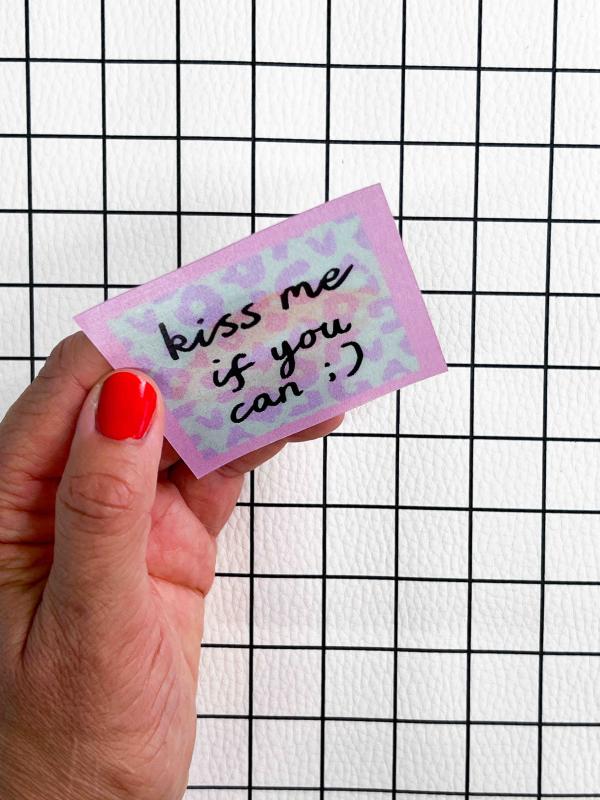 kiss me
if you
can ;)